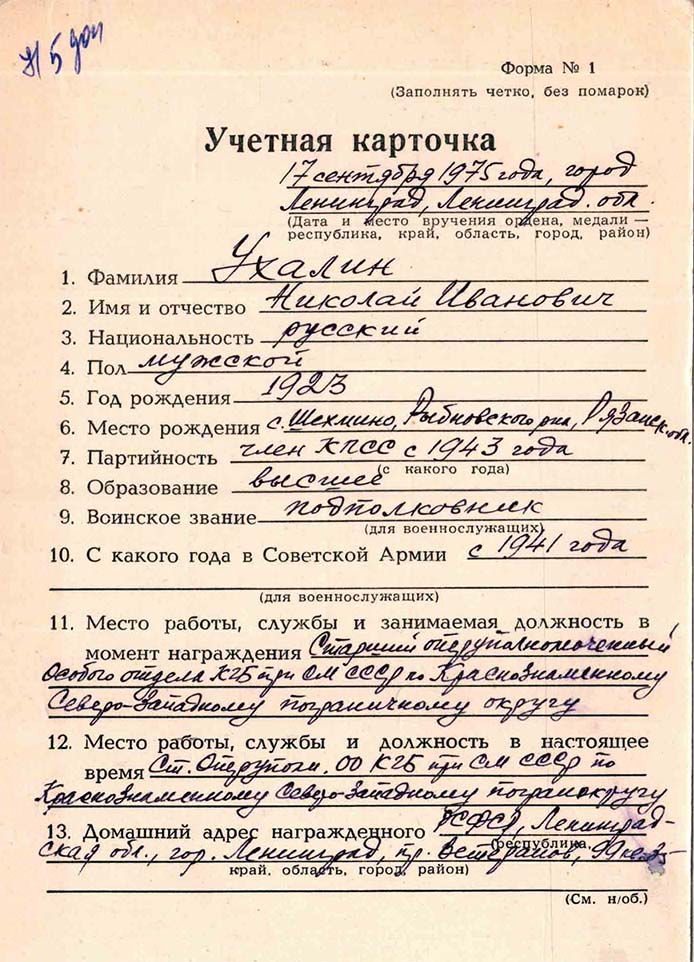 № 5 доп
Форма № 1
(Заполнять четко, без помарок)
Учетная карточка
17 сентября 1975 года, город
Ленинград, Ленинград. обл.
(Дата и место вручения ордена, медали —
республика, край, область, город, район)
1. Фамилия Ухалин
2. Имя и отчество Николай Иванович
3. Национальность русский
4. Пол мужской
5. Год рождения 1923
6. Место рождения с. Шехмино, Рыбновского рна, Рязанск. обл.
7. Партийность член КПСС с 1943 года
(с какого года)
8. Образование высшее
9. Воинское звание подполковник
(для военнослужащих)
10. С какого года в Советской Армии с 1941 года
(для военнослужащих)
11. Место работы, службы и занимаемая должность в
момент награждения Старший оперуполномоченный
Особого отдела КГБ при СМ СССР по Краснознаменному
Северо-Западному пограничному округу
12. Место работы, службы и должность в настоящее
время Ст. Оперуполн. ОО КГБ при СМ СССР по
Краснознаменному Северо-Западному погранокругу
13. Домашний адрес награжденного РСФСР, Ленинград-
(республика,
ская обл., гор. Ленинград, пр. Ветеранов, 99 кв. 35
край, область, город, район)
(См. н/об.)